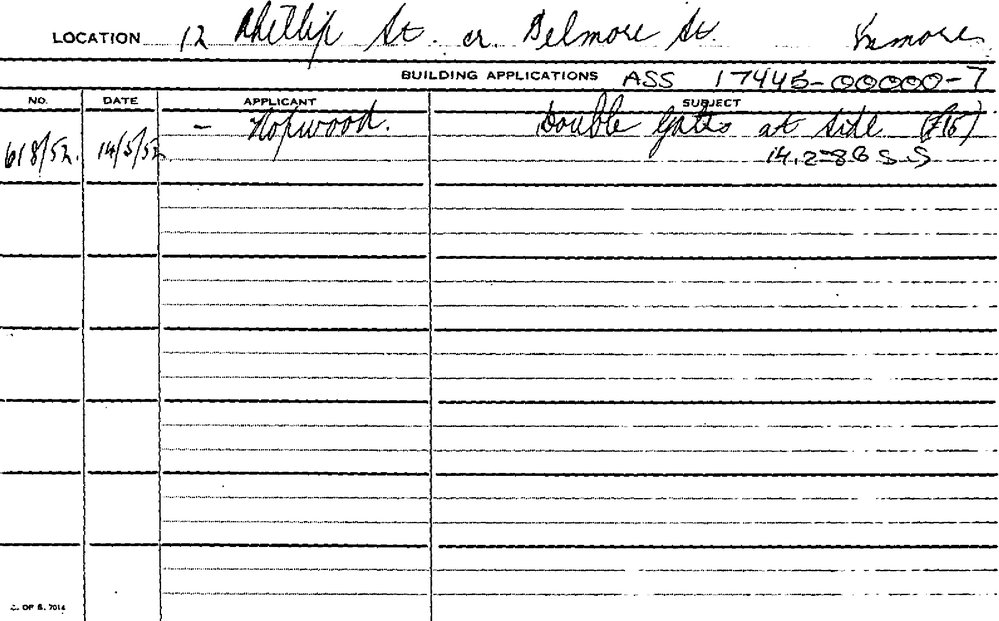 LOCATION 12 Phillip St. cr. Belmore St. Enmore
BUILDING APPLICATIONS ASS 17445-00000-7
NO. DATE APPLICANT SUBJECT
618/52. 14/5/52 - Hopwood. Double Gates at side (£15)
14.2-8B S.S
C. OF S. 7014